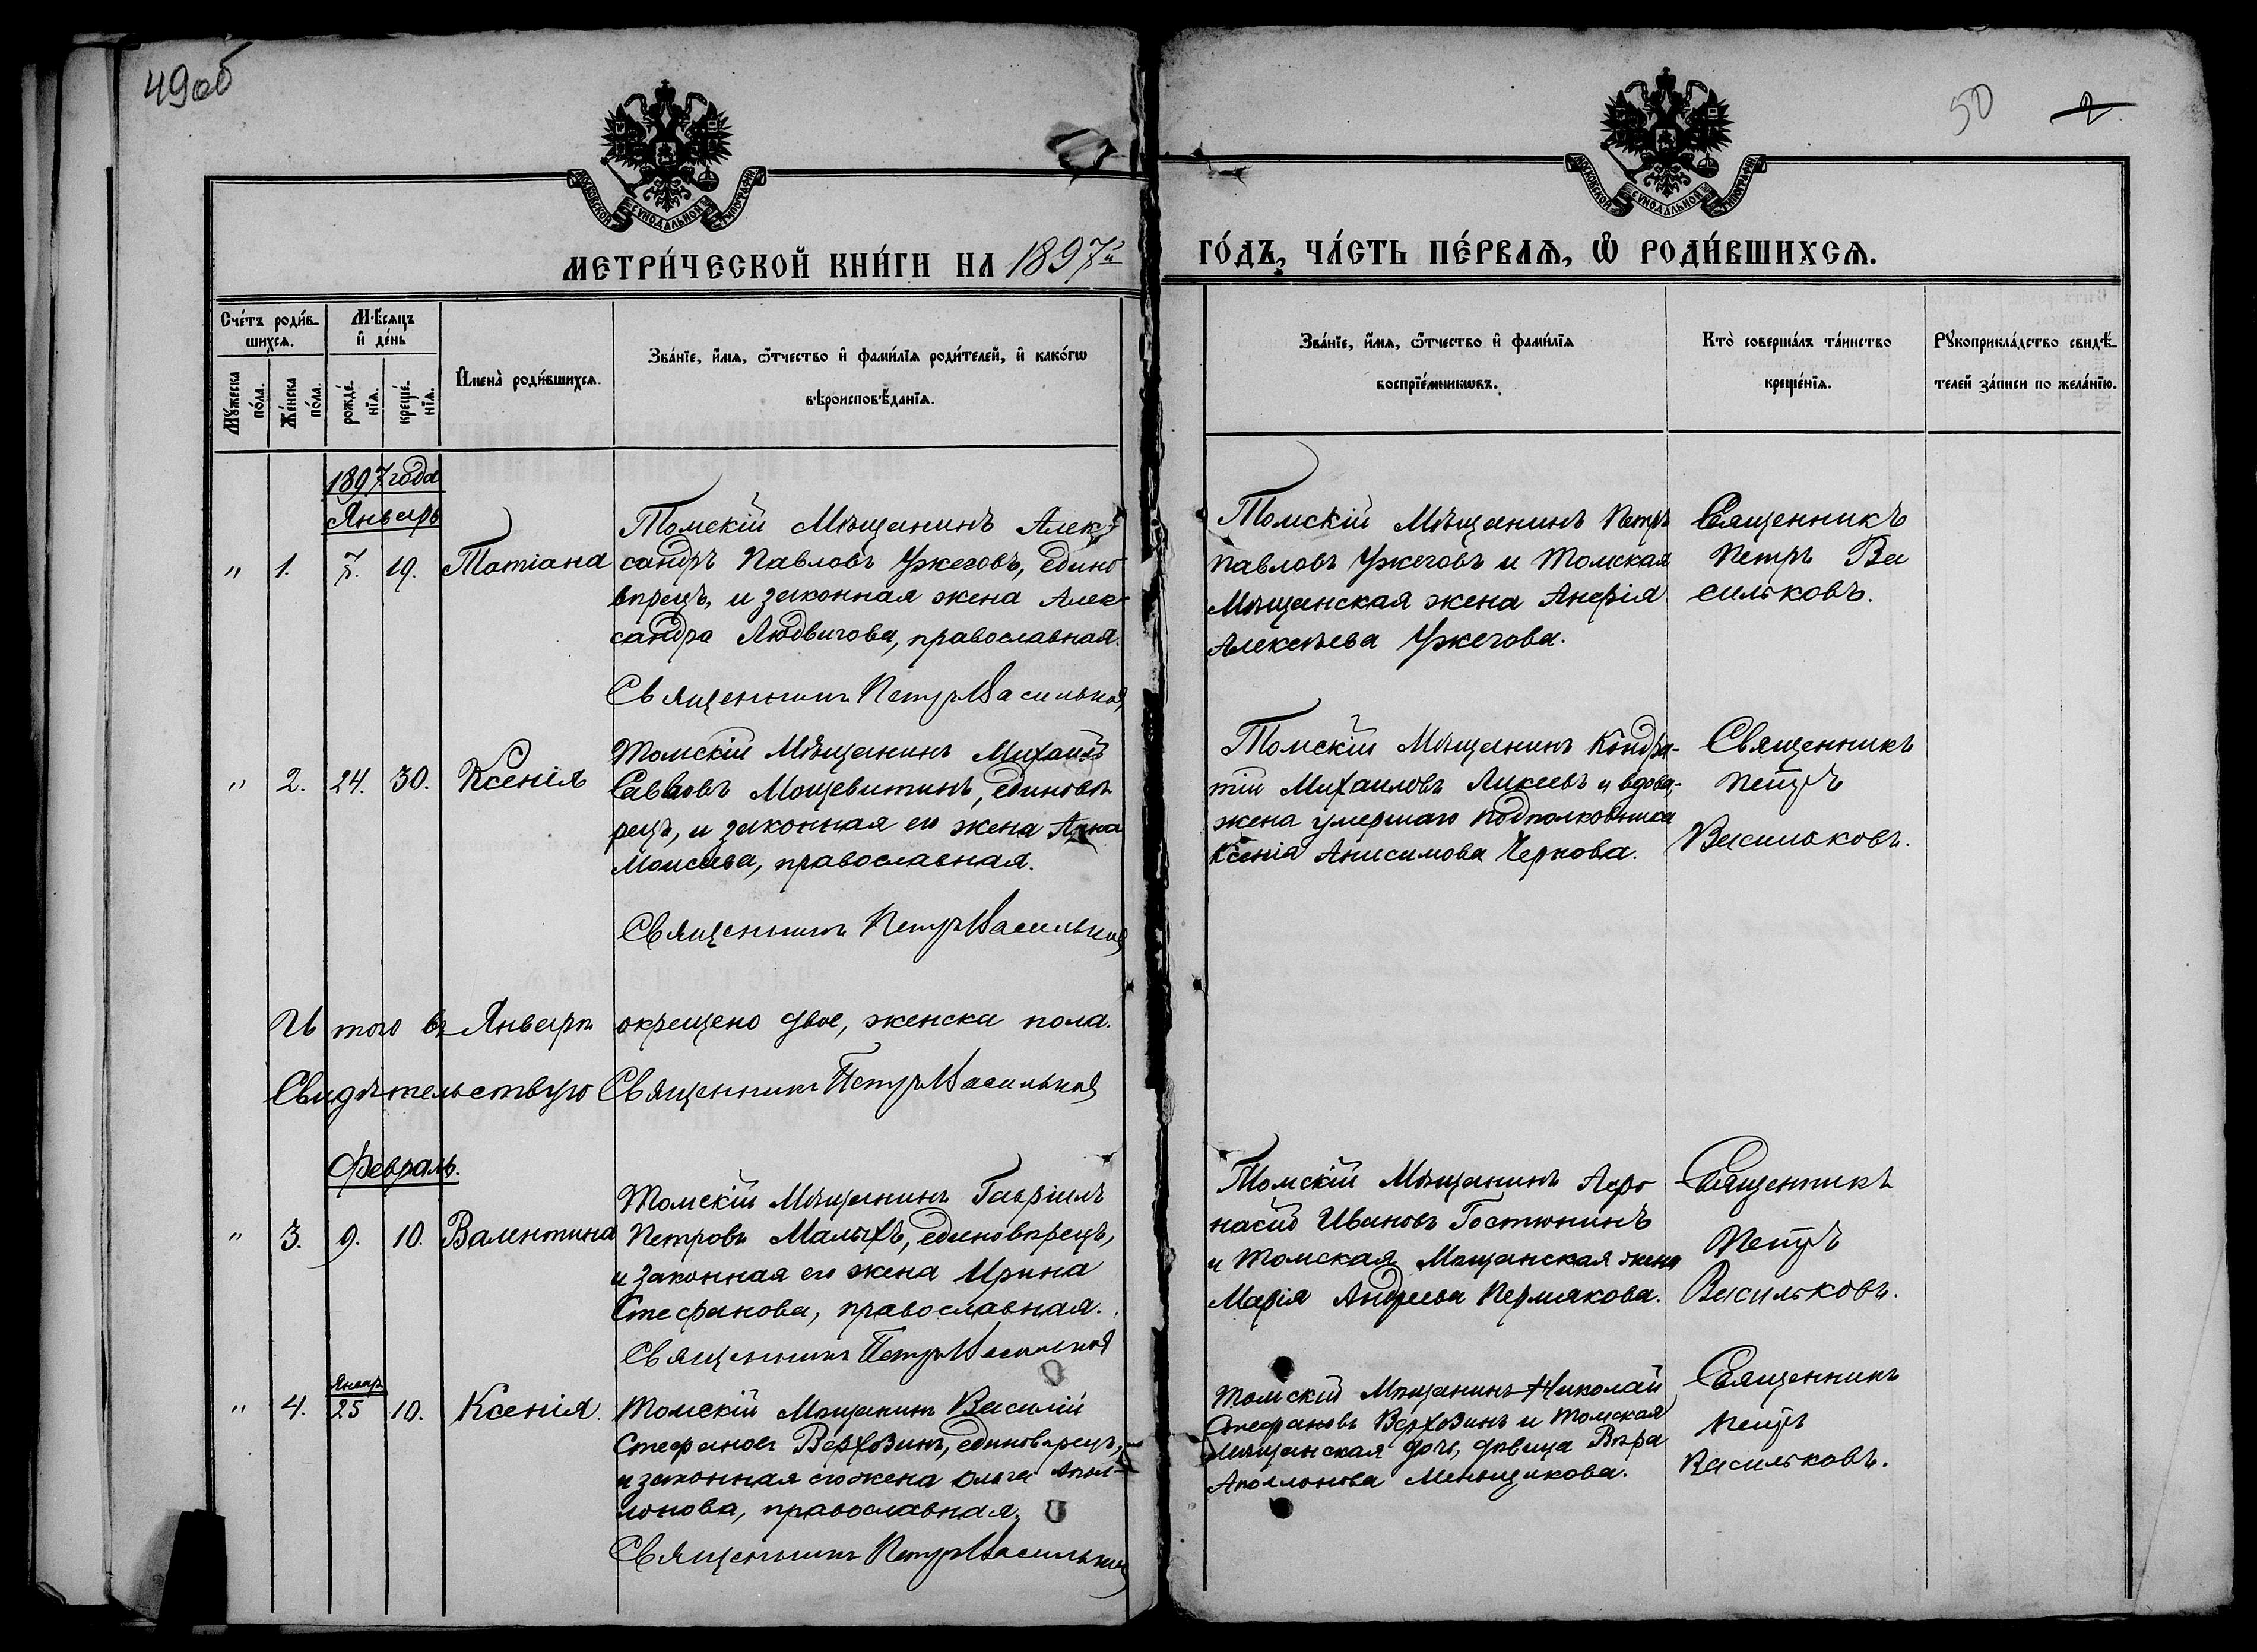 49об
50
2
МОСКОВСКОЙ СѴНОДАЛЬНОЙ ТИПОГРАФІИ
МОСКОВСКОЙ СѴНОДАЛЬНОЙ ТИПОГРАФІИ
МЕТРИ́ЧЕСКОЙ КНИ́ГИ НА 1897й
ГО́ДЪ, ЧА́СТЬ ПЕ́РВАѦ, Ѡ҆ РОДИ́ВШИХСѦ.
Сче́тъ роди́в-
шихсѧ.
Мѣ́сѧцъ
и҆ де́нь
Мꙋ́жеска
по́ла.
Же́нска
по́ла.
рожде́-
нїѧ.
креще́-
нїѧ.
И҆мена̀ роди́вшихсѧ.
Зва́нїе, и҆́мѧ, ѻ҆́тчество и҆ фами́лїѧ роди́телей, и҆ како́гѡ
вѣроисповѣ́данїѧ.
Зва́нїе, и҆́мѧ, ѻ҆́тчество и҆ фами́лїѧ
воспрїе́мникѡвъ.
Кто̀ соверша́лъ та́инство
креще́нїѧ.
Рꙋкоприкла́дство свидѣ́-
телей за́писи по жела́нїю.
1897 года
Январь
" 1. 7. 19. Татіана
Томскій Мѣщанинъ Алек-
сандръ Павловъ Ужеговъ, едино-
вѣрецъ, и законная жена Алек-
сандра Людвигова, православная.
Священникъ Петръ Васильков
Томскій Мѣщанинъ Петръ
Павловъ Ужеговъ и Томская
Мѣщанская жена Анфія
Алексѣева Ужегова.
Священникъ
Петръ Ва
сильковъ.
" 2. 24. 30. Ксенія
Томскій Мѣщанинъ Михаилъ
Саввовъ Мощевитинъ, единовѣ
рецъ, и законная его жена Анна
Моисеева, православная.
Священникъ Петръ Васильков
Томскій Мѣщанинъ Кондра-
тій Михаиловъ Аикеевъ и вдова,
жена умершаго подполковника
Ксенія Анисимова Чернова.
Священникъ
Петръ
Васильковъ.
И того въ Январѣ окрещено двое, женска пола.
Свидѣтельствую Священникъ Петръ Васильков
Февраль.
" 3. 9. 10. Валентина
Томскій Мѣщанинъ Гавріилъ
Петровъ Малыхъ, единовѣрецъ,
и законная его жена Ирина
Стефанова, православная.
Священникъ Петръ Васильков
Томскій Мѣщанинъ Афо
насій Ивановъ Гостюнинъ
и Томская Мѣщанская жена
Марія Андреева Пермякова.
Священникъ
Петръ
Васильковъ.
Январ
" 4. 25 10. Ксенія.
Томскій Мѣщанинъ Василій
Стефановъ Верховинъ, единовѣрецъ,
и законная его жена Ольга Апол-
лонова, православная.
Священникъ Петръ Васильков
Томскій Мѣщанинъ Николай
Стефановъ Верховинъ и Томская
Мѣщанская дочь, дѣвица Вѣра
Аполлонова Меньщикова.
Священникъ
Петръ
Васильковъ.